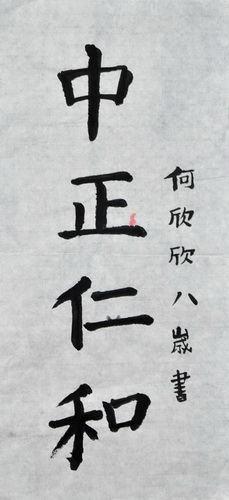 中正仁和
何欣欣八歲書